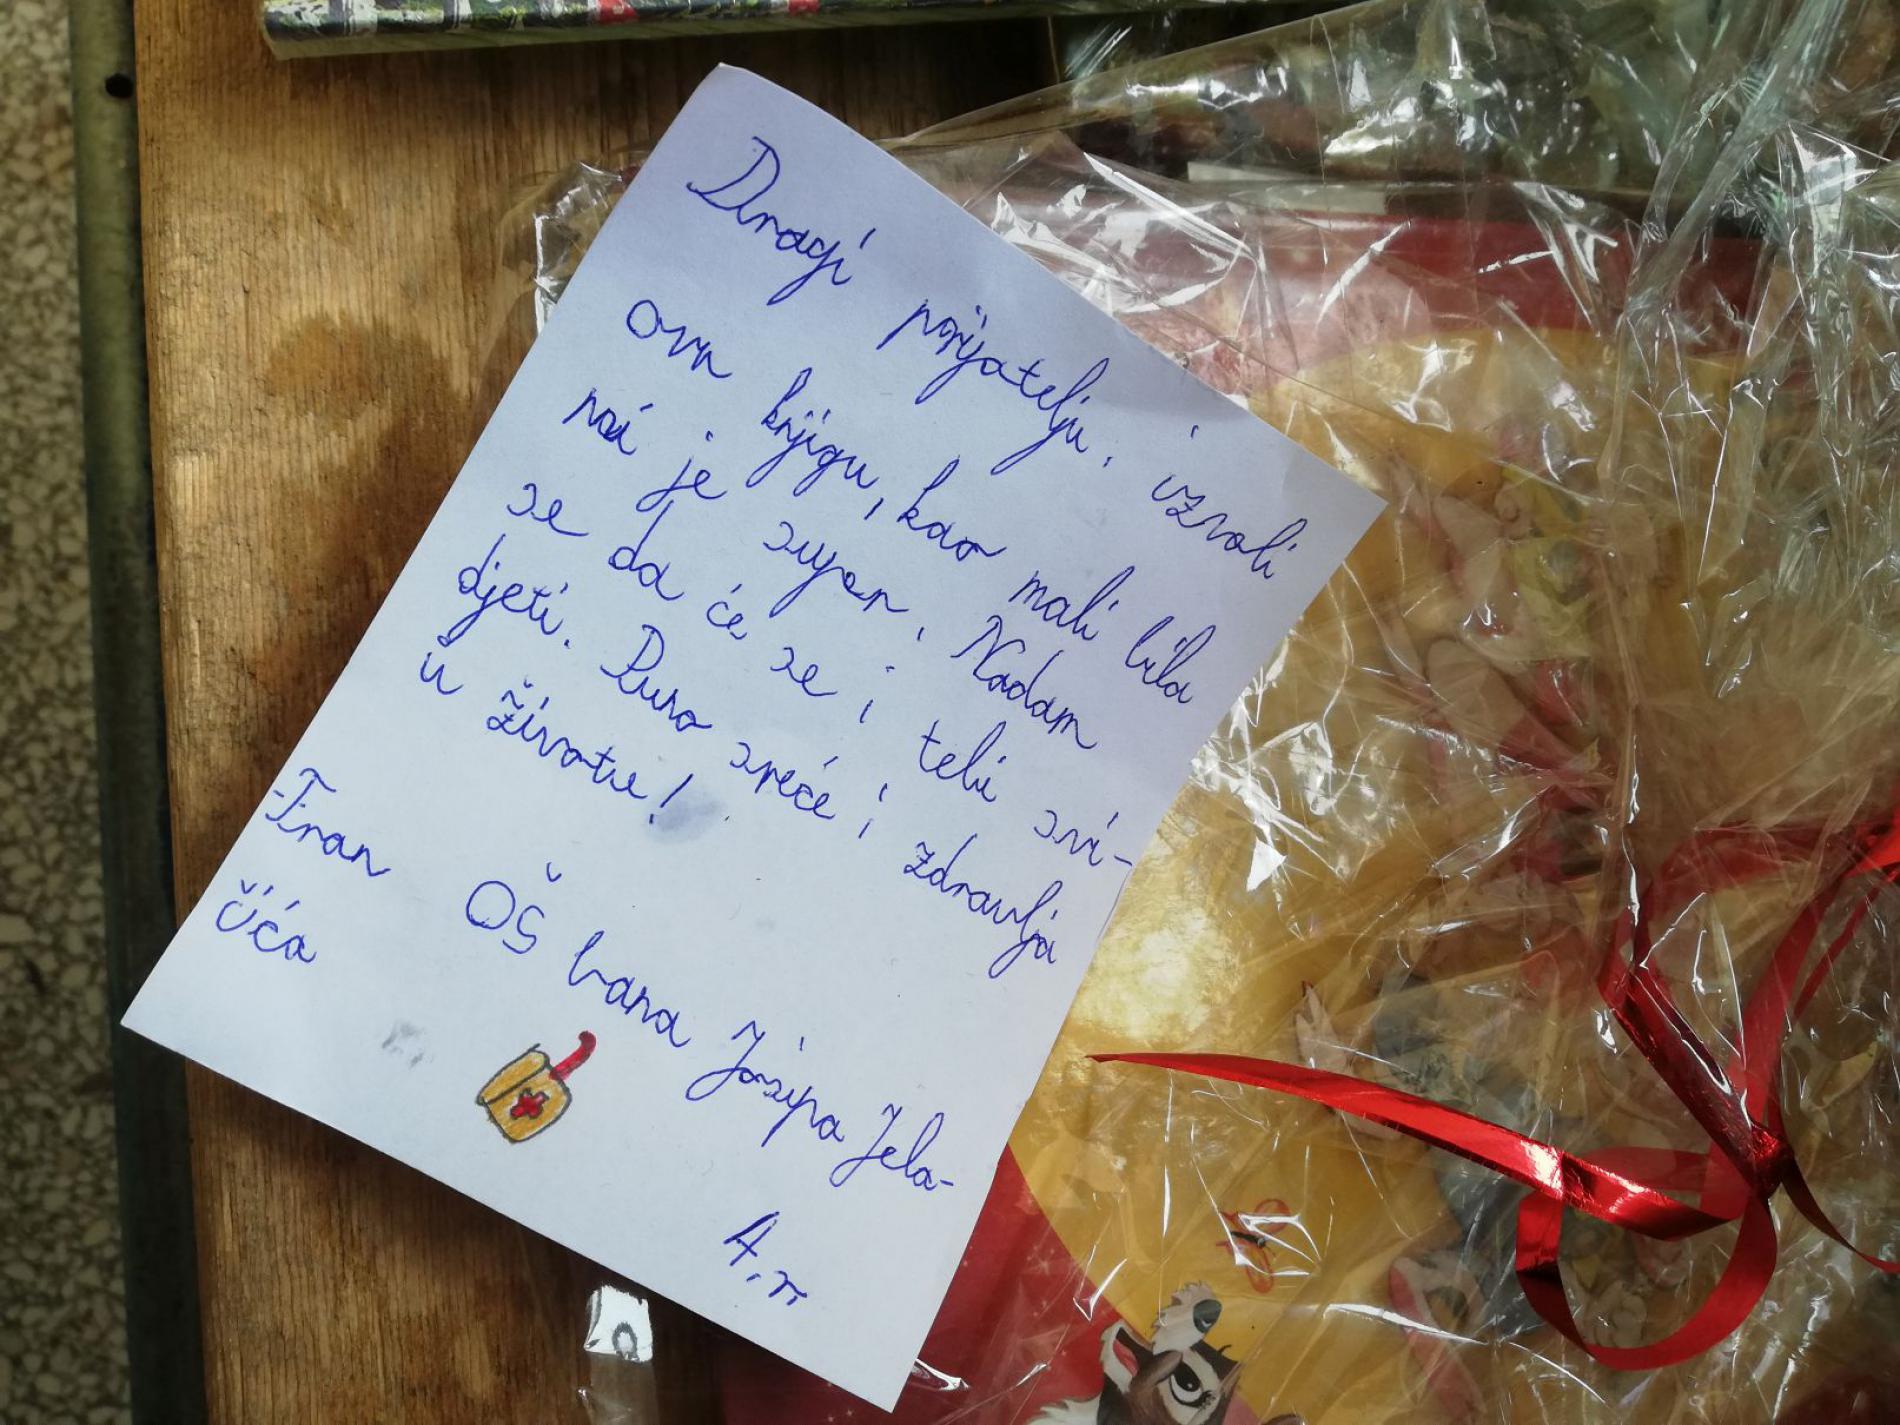 Dragi prijatelju, izvoli
ovu knjigu, kao mali bila
mi je super. Nadam
se da će se i tebi svi-
djeti. Puno sreće i zdravlja
u životu!
-Fran OŠ bana Josipa Jela-
čića
4. r.